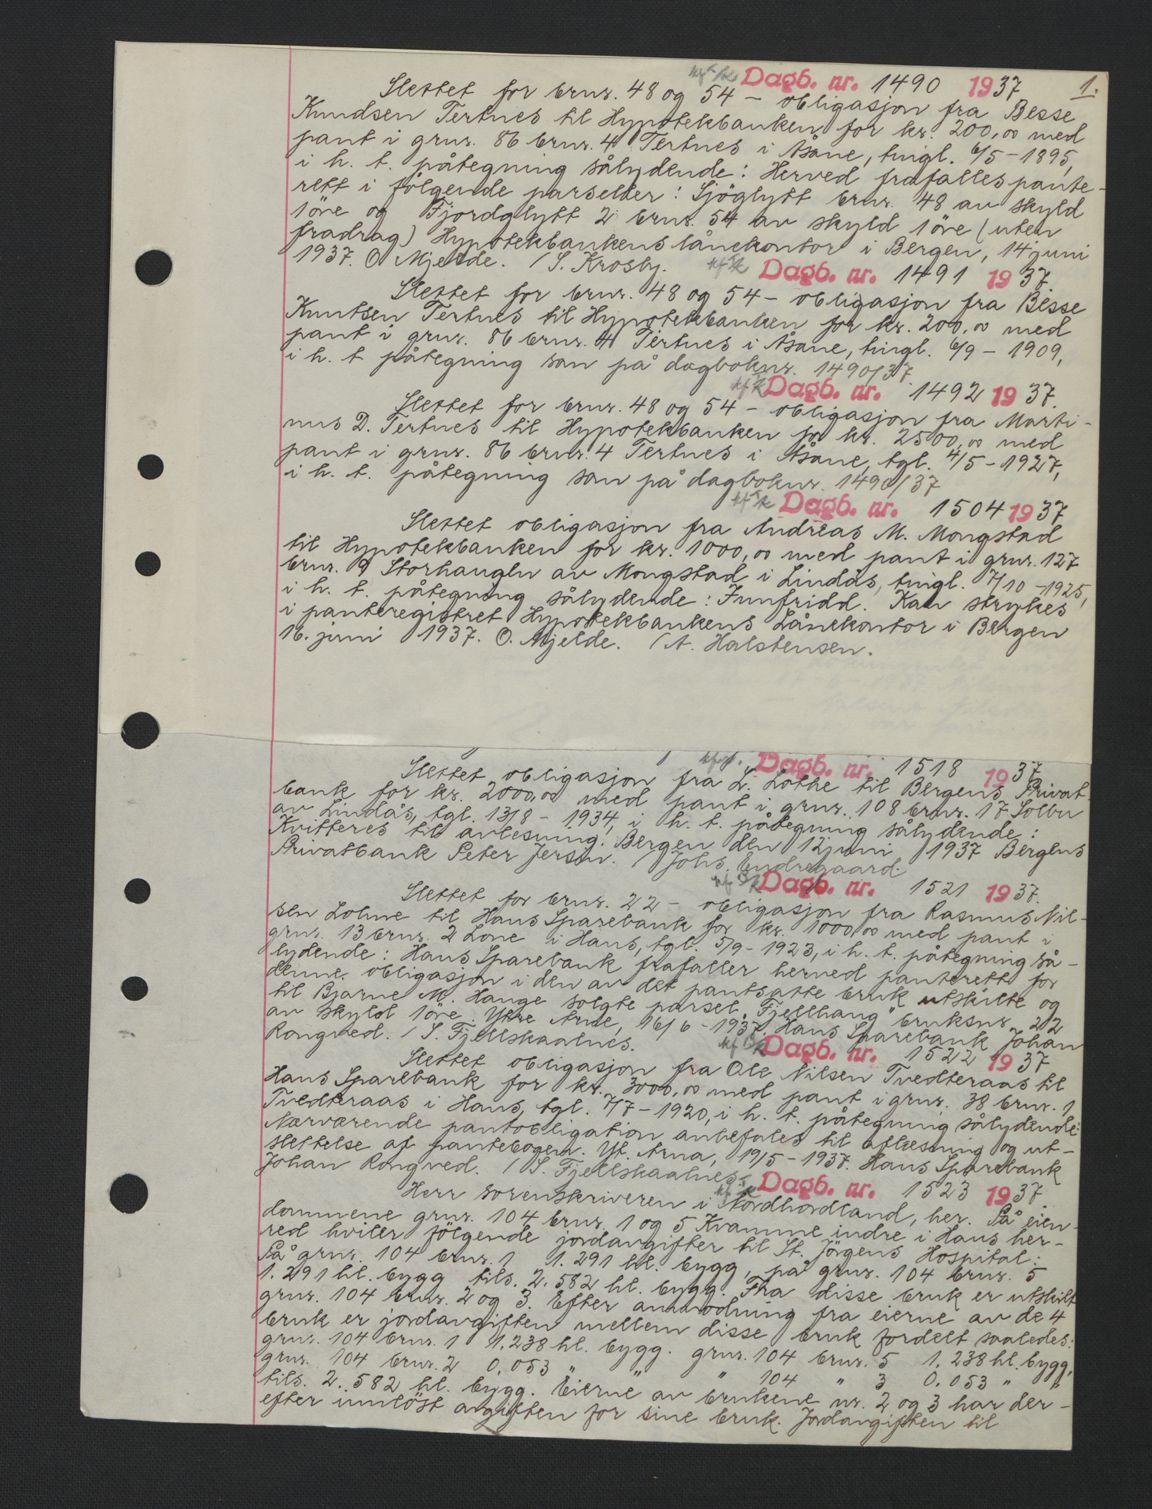 Dagb. nr. 1490 1937 1.
Slettet for brnr. 48 og 54 – obligasjon fra Besse
Knudsen Tertnes til Hypotekbanken for kr. 200,00 med
pant i grnr. 86 brnr. 4 Tertnes i Åsane, tingl. 6/5 – 1895,
i h. t. påtegning sålydende: Herved frafalles pante-
rett i følgende parseller: Sjøglytt brnr. 48 av skyld
1 öre og Fjordglytt 2 brnr. 54 av skyld 1 öre (uten
fradrag) Hypotekbankens lånekontor i Bergen, 14 juni
1937. O. Mjelde. / S. Krosby.
Dagb. nr. 1491 1937.
Slettet for brnr. 48 og 54 – obligasjon fra Besse
Knutsen Tertnes til Hypotekbanken for kr. 200,00 med
pant i grnr. 86 brnr. 4 Tertnes i Åsane, tingl. 6/9 – 1909,
i h. t. påtegning som på dagboknr. 1490/37.
Dagb. nr. 1492 1937.
Slettet for brnr. 48 og 54 – obligasjon fra Marti-
nus D. Tertnes til Hypotekbanken for kr. 2500,00 med
pant i grnr. 86 brnr. 4 Tertnes i Åsane, tgl. 4/5 – 1927,
i h. t. påtegning som på dagboknr. 1490/37
Dagb. nr. 1504 1937
Slettet obligasjon fra Andreas M. Mongstad
til Hypotekbanken for kr. 1000,00 med pant i grnr. 127
brnr. 9 Storhaugen av Mongstad i Lindås, tingl. 7/10 – 1925,
i h. t. påtegning sålydende: Innfridd. Kan strykes
i panteregistret Hypotekbankens Lånekontor i Bergen
16. juni 1937. O. Mjelde. / A. Halstensen.
Dagb. nr. 1518 1937.
Slettet obligasjon fra L. Lothe til Bergens Privat
bank for kr. 2000,00 med pant i grnr. 108 brnr. 17 Solbu
av Lindås, tgl. 13/8 – 1934, i h. t. påtegning sålydende:
Kvitteres til avlesning. Bergen den 12 juni 1937 Bergens
Privatbank Peter Jersin. / Johs. Endregaard
Dagb. nr. 1521 1937.
Slettet for brnr. 22 – obligasjon fra Rasmus Nil-
sen Lohne til Haus Sparebank for kr. 1000,00 med pant i
grnr. 13 brnr. 2 Lone i Haus, tgl. 5/9 – 1923, i h. t. påtegning så-
lydende: Haus Sparebank frafaller herved panterett for
denne obligasjon i den av det pantsatte bruk utskilte og
til Bjarne M. Hauge solgte parsel "Fjellhaug" bruksnr. 22
av skyld 1 öre. Ytre Arne, 16/6 – 1937. Haus Sparebank Johan
Rongved. / S. Fjellskaalnes.
Dagb. nr. 1522 1937
Slettet obligasjon fra Ole Nilsen Tvedteraas til
Haus Sparebank for kr. 3000,00 med pant i grnr. 38 brnr. 1
Tvedteraas i Haus, tgl. 7/7 – 1920, i h. t. påtegning sålydende:
Nærværende pantobligation anbefales til aflæsning og ut-
slettelse af pantebogen. Yt. Arna, 19/5 – 1937. Haus Sparebank
Johan Rongved. / S. Fjellskaalnes
Dagb. nr. 1523 1937.
Herr sorenskriveren i Nordhordland, her. På eien-
dommene grnr. 104 brnr. 1 og 5 Kvamme indre i Haus her-
red hviler följgende jordavgifter til St. Jörgens Hospital:
På grnr. 104 brnr. 1 1.291 hl. bygg, på grnr. 104 brnr. 5
1.291 hl. bygg tils. 2.582 hl. bygg. Fra disse bruk er utskilt
grnr. 104 brnr. 2 og 3. Efter anmodning fra eierne av de 4
bruk er jordavgiften mellem disse bruk fordelt saaledes:
grnr. 104 brnr. 1 1.238 hl. bygg. grnr. 104 brnr. 5 1.238 hl. bygg,
grnr. 104 brnr. 2 0.053 " " " 104 " 3 0.053 " "
tils. 2.582 hl. bygg. Eierne av brukene nr. 2 og 3 har der-
efter innlöst avgiften for sine bruk. Jordavgiften til